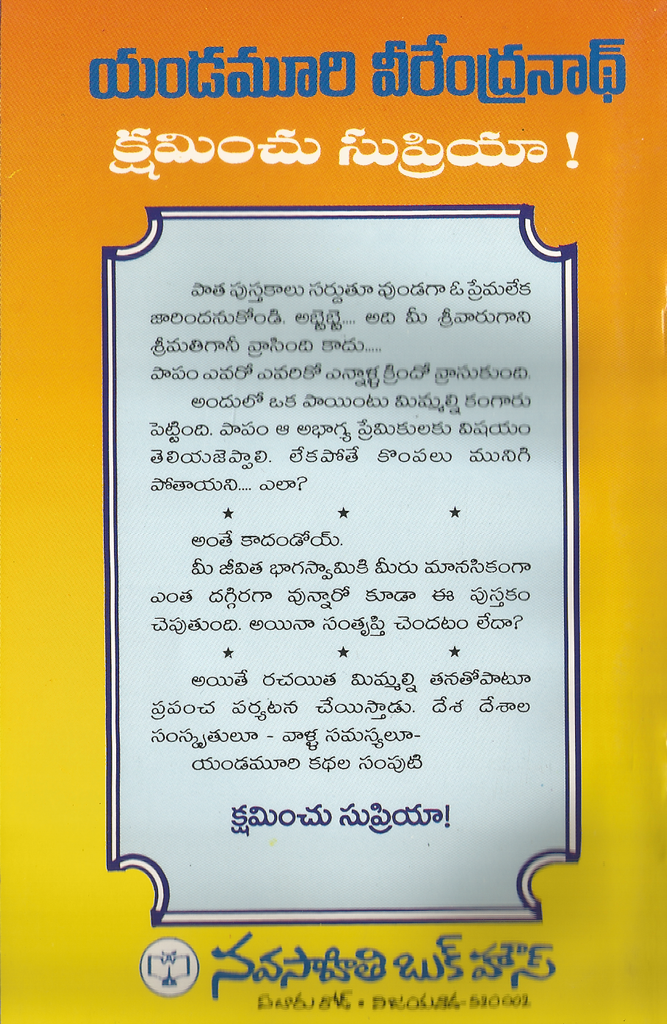 యండమూరి వీరేంద్రనాథ్
క్షమించు సుప్రియా !
పాత పుస్తకాలు సర్దుతూ వుండగా ఓ ప్రేమలేక
జారిందనుకోండి. అబ్బెబ్బె.... అది మీ శ్రీవారుగాని
శ్రీమతిగానీ వ్రాసింది కాదు.....
పాపం ఎవరో ఎవరికో ఎన్నాళ్ళ క్రిందో వ్రాసుకుంది.
అందులో ఒక పాయింటు మిమ్మల్ని కంగారు
పెట్టింది. పాపం ఆ అభాగ్య ప్రేమికులకు విషయం
తెలియజెప్పాలి. లేకపోతే కొంపలు మునిగి
పోతాయని.... ఎలా?
★ ★ ★
అంతే కాదండోయ్.
మీ జీవిత భాగస్వామికి మీరు మానసికంగా
ఎంత దగ్గిరగా వున్నారో కూడా ఈ పుస్తకం
చెపుతుంది. అయినా సంతృప్తి చెందటం లేదా?
★ ★ ★
అయితే రచయిత మిమ్మల్ని తనతోపాటూ
ప్రపంచ పర్యటన చేయిస్తాడు. దేశ దేశాల
సంస్కృతులూ - వాళ్ళ సమస్యలూ-
యండమూరి కథల సంపుటి
క్షమించు సుప్రియా!
నవసాహితి బుక్ హౌస్
ఏలూరు రోడ్ • విజయవాడ-520002